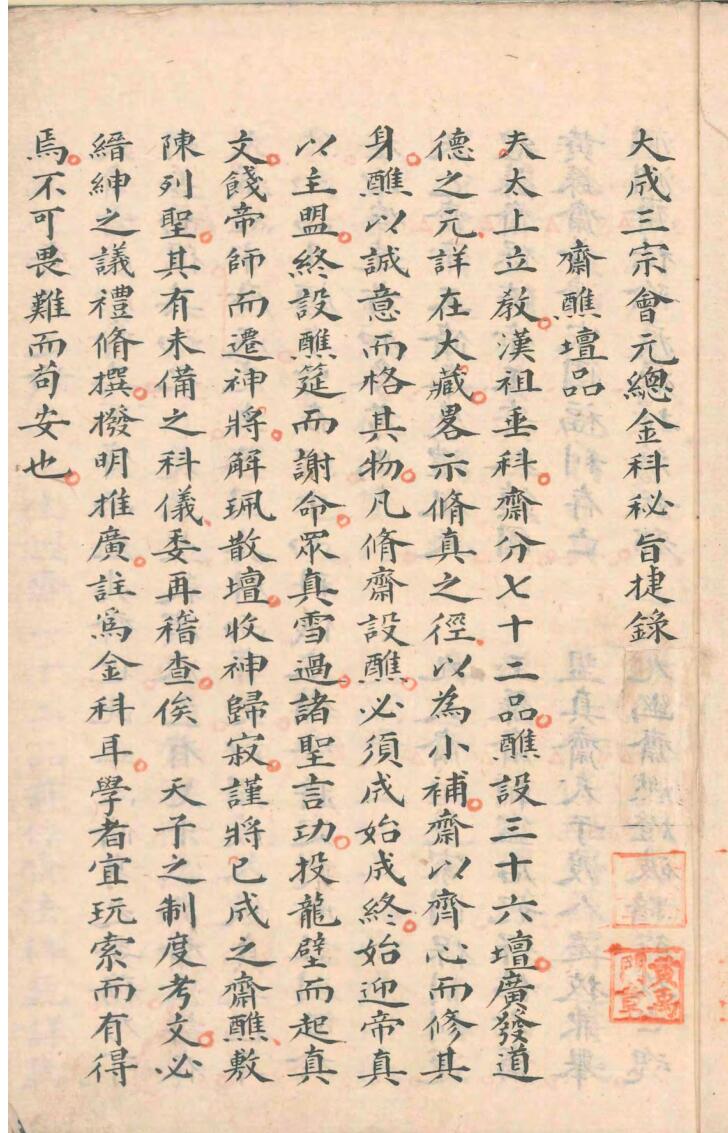 大成三宗會元總金科秘旨捷錄
齋醮壇品
夫太上立教漢祖垂科齋分七十二品醮設三十六壇廣發道
德之元詳在大藏畧示脩真之徑以為小補齋以齊心而修其
身醮以誠意而格其物凡脩齋設醮必須成始成終始迎帝真
以主盟終設醮筵而謝命眾真雪過諸聖言功投龍壁而起真
文餞帝師而遷神將解珮散壇收神歸寂謹將已成之齋醮敷
陳列聖其有未備之科儀委再稽查俟 天子之制度考文必
縉紳之議禮脩撰撥明推廣註爲金科耳學者宜玩索而有得
焉不可畏難而苟安也